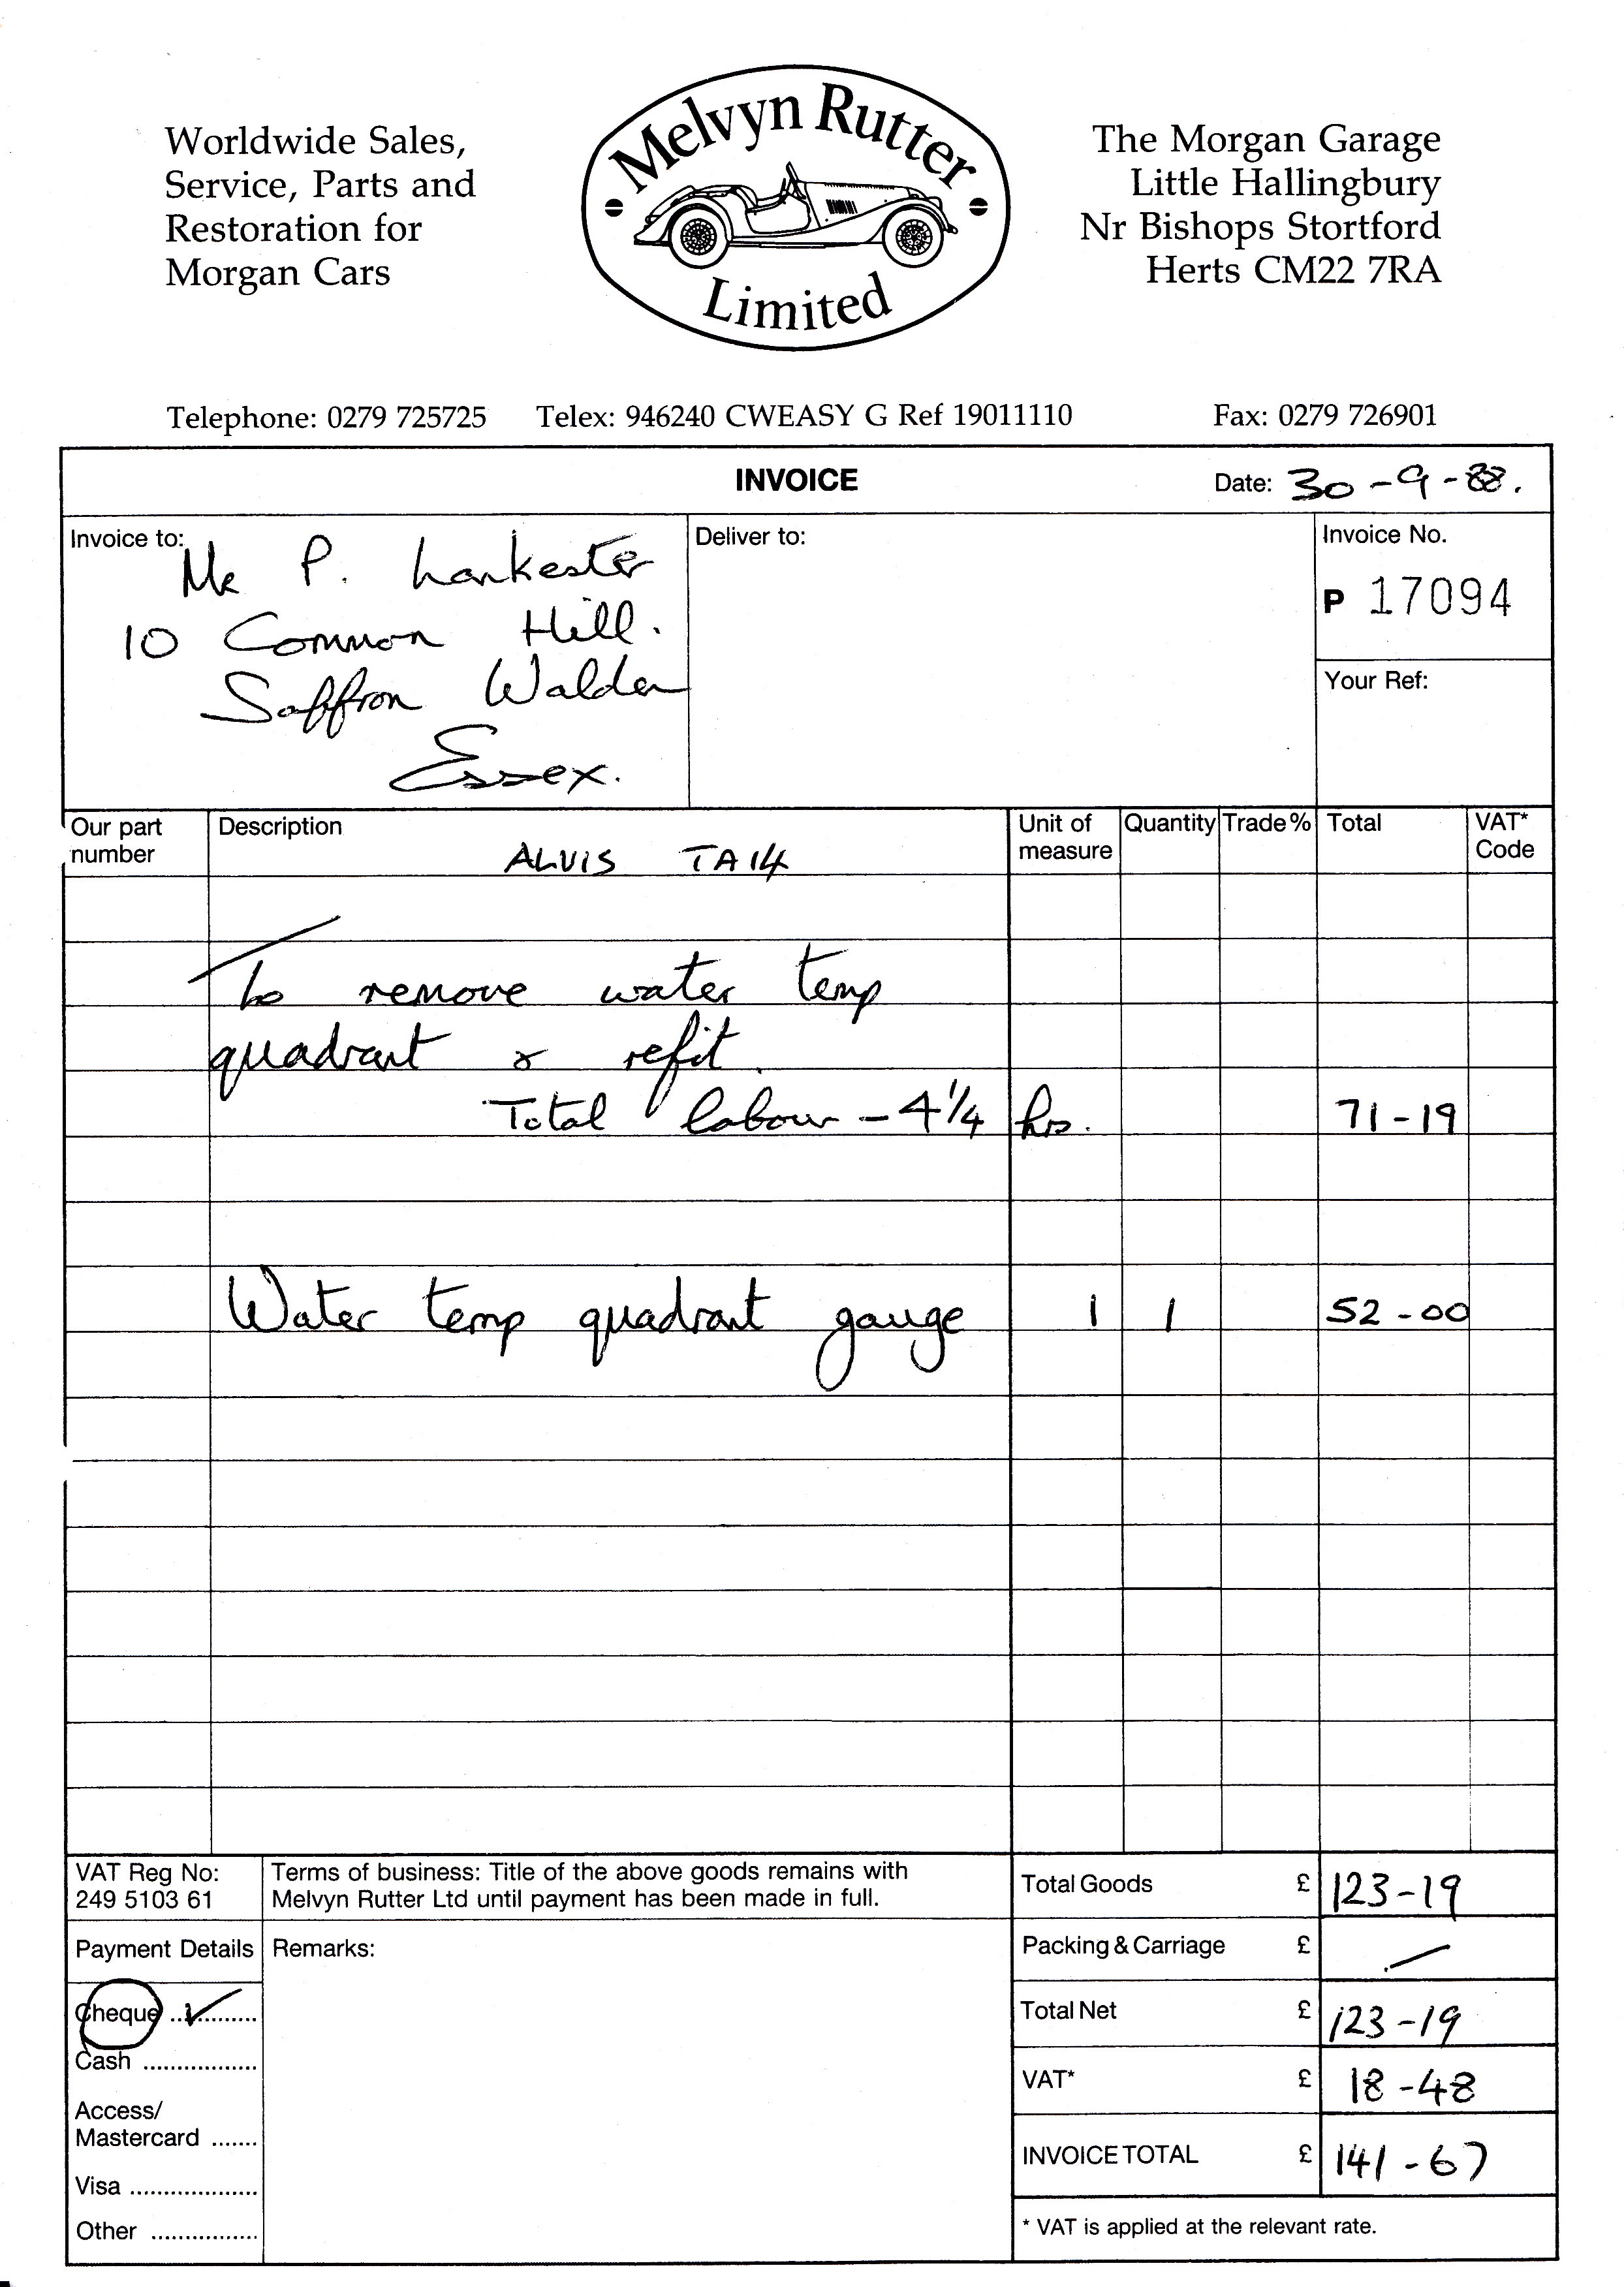 Worldwide Sales,
Service, Parts and
Restoration for
Morgan Cars
Melvyn Rutter
Limited
The Morgan Garage
Little Hallingbury
Nr Bishops Stortford
Herts CM22 7RA
Telephone: 0279 725725 Telex: 946240 CWEASY G Ref 19011110 Fax: 0279 726901
INVOICE Date: 30-9-88.
Invoice to:
Mr P. Lankester
10 Common Hill.
Saffron Walden
Essex.
Deliver to:
Invoice No.
P 17094
Your Ref:
Our part number Description Unit of measure Quantity Trade% Total VAT* Code
ALVIS TA14
To remove water temp
quadrant & refit.
Total labour - 4 1/4 hrs. 71-19
Water temp quadrant gauge 1 1 52-00
VAT Reg No:
249 5103 61
Terms of business: Title of the above goods remains with
Melvyn Rutter Ltd until payment has been made in full.
Payment Details
Remarks:
Cheque ..✓..........
Cash ..................
Access/
Mastercard .......
Visa ...................
Other ................
Total Goods £ 123-19
Packing & Carriage £ —
Total Net £ 123-19
VAT* £ 18-48
INVOICE TOTAL £ 141-67
* VAT is applied at the relevant rate.